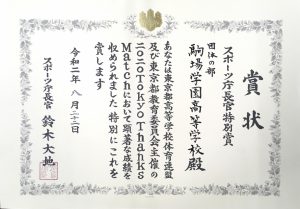 賞状
スポーツ庁長官特別賞
団体の部
駒場学園高等学校殿
あなたは東京都高等学校体育連盟
及び東京都教育委員会主催の
2020TokyoThanks
Matchにおいて顕著な成績を
収められました 特別にこれを
賞します
令和二年八月二十二日
スポーツ庁長官 鈴木大地